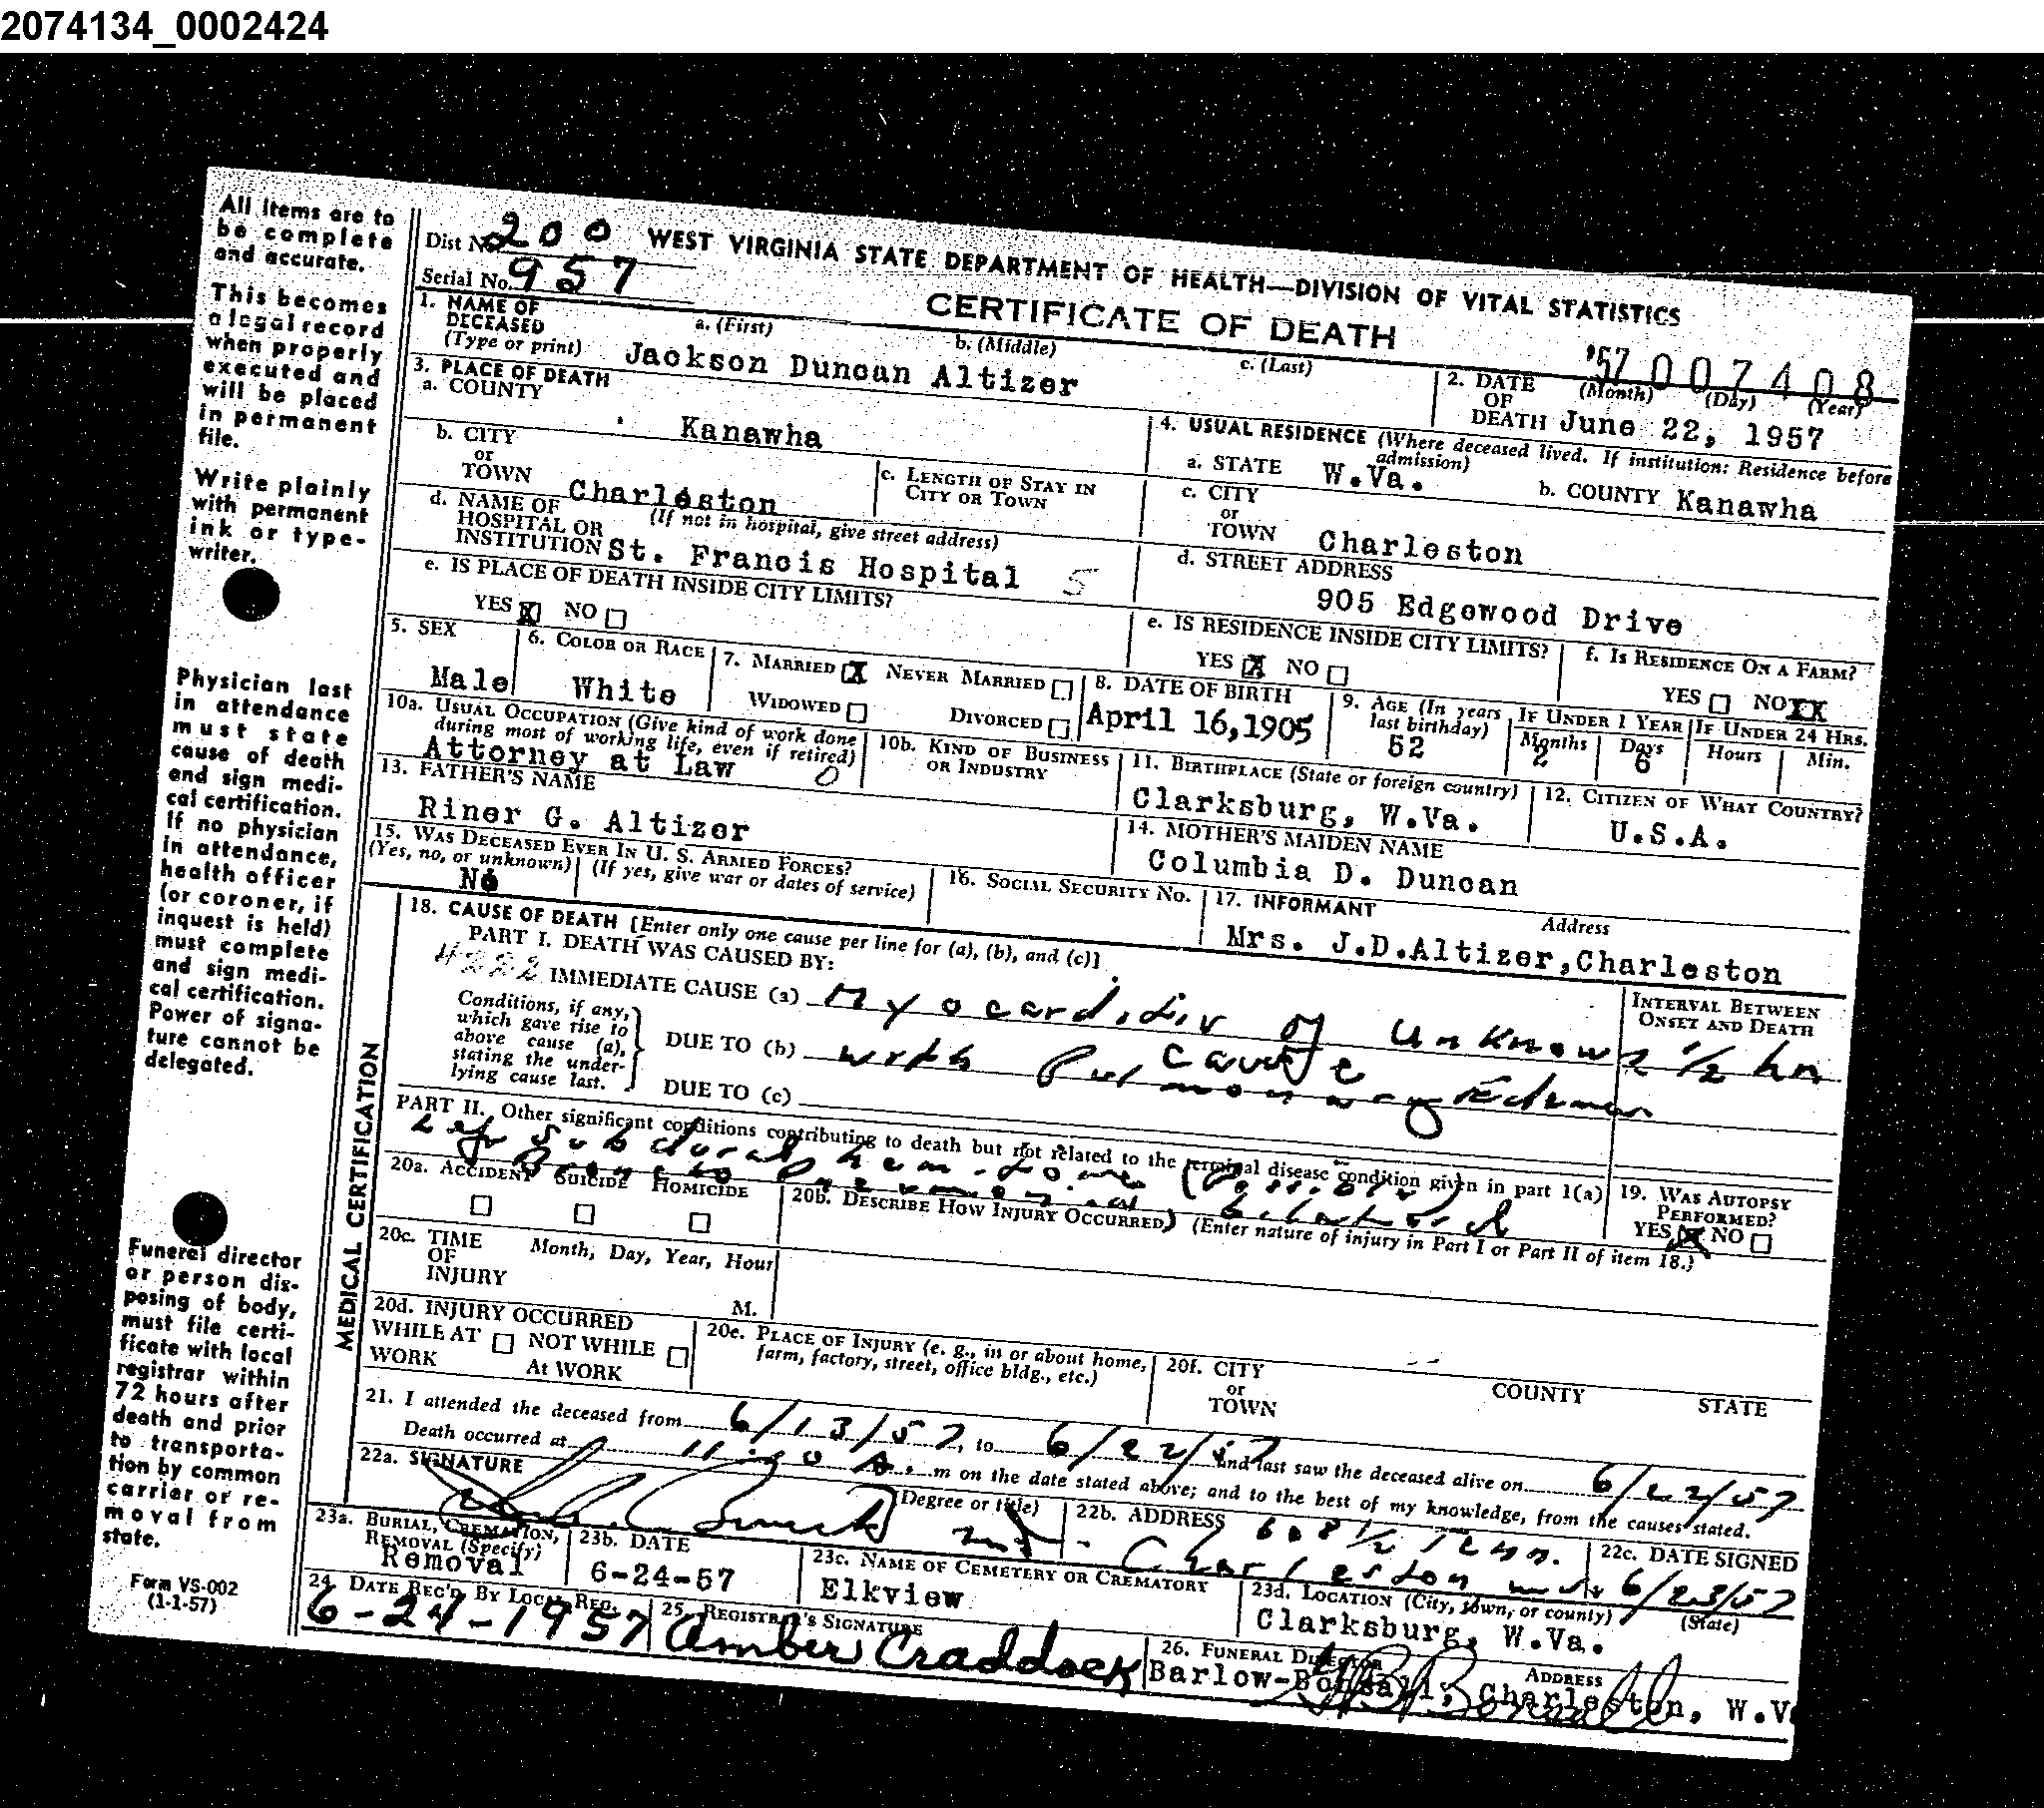 2074134_0002424
All items are to
be complete
and accurate.
This becomes
a legal record
when properly
executed and
will be placed
in permanent
file.
Write plainly
with permanent
ink or type-
writer.
Physician last
in attendance
must state
cause of death
and sign medi-
cal certification.
If no physician
in attendance,
health officer
(or coroner, if
inquest is held)
must complete
and sign medi-
cal certification.
Power of signa-
ture cannot be
delegated.
Funeral director
or person dis-
posing of body,
must file certi-
ficate with local
registrar within
72 hours after
death and prior
to transporta-
tion by common
carrier or re-
moval from
state.
Form VS-002
(1-1-57)
Dist No. 200 WEST VIRGINIA STATE DEPARTMENT OF HEALTH—DIVISION OF VITAL STATISTICS
Serial No. 957
CERTIFICATE OF DEATH
'57 007408
1. NAME OF DECEASED (Type or print) a. (First) b. (Middle) c. (Last)
Jackson Duncan Altizer
2. DATE OF DEATH (Month) (Day) (Year)
June 22, 1957
3. PLACE OF DEATH
a. COUNTY
Kanawha
4. USUAL RESIDENCE (Where deceased lived. If institution: Residence before admission)
a. STATE W.Va. b. COUNTY Kanawha
b. CITY or TOWN Charleston
c. LENGTH OF STAY IN CITY OR TOWN
c. CITY or TOWN Charleston
d. NAME OF HOSPITAL OR INSTITUTION (If not in hospital, give street address)
St. Francis Hospital 5
d. STREET ADDRESS
905 Edgewood Drive
e. IS PLACE OF DEATH INSIDE CITY LIMITS?
YES X NO
e. IS RESIDENCE INSIDE CITY LIMITS?
YES X NO
f. IS RESIDENCE ON A FARM?
YES NO XX
5. SEX
Male
6. COLOR OR RACE
White
7. MARRIED X NEVER MARRIED
WIDOWED DIVORCED
8. DATE OF BIRTH
April 16,1905
9. AGE (In years last birthday)
52
IF UNDER 1 YEAR IF UNDER 24 HRS.
Months Days Hours Min.
2 6
10a. USUAL OCCUPATION (Give kind of work done during most of working life, even if retired)
Attorney at Law 0
10b. KIND OF BUSINESS OR INDUSTRY
11. BIRTHPLACE (State or foreign country)
Clarksburg, W.Va.
12. CITIZEN OF WHAT COUNTRY?
U.S.A.
13. FATHER'S NAME
Riner G. Altizer
14. MOTHER'S MAIDEN NAME
Columbia D. Duncan
15. WAS DECEASED EVER IN U. S. ARMED FORCES?
(Yes, no, or unknown) (If yes, give war or dates of service)
No
16. SOCIAL SECURITY No.
17. INFORMANT Address
Mrs. J.D.Altizer,Charleston
MEDICAL CERTIFICATION
18. CAUSE OF DEATH [Enter only one cause per line for (a), (b), and (c)]
PART I. DEATH WAS CAUSED BY:
4222 IMMEDIATE CAUSE (a) Myocarditis of unknown
cause
INTERVAL BETWEEN ONSET AND DEATH
2 1/2 hr
Conditions, if any, which gave rise to above cause (a), stating the underlying cause last.
DUE TO (b) with Pulmonary Edema
DUE TO (c)
PART II. Other significant conditions contributing to death but not related to the terminal disease condition given in part 1(a)
Left Subdural hematoma (Possible)
Broncho pneumonia bilateral
19. WAS AUTOPSY PERFORMED?
YES X NO
20a. ACCIDENT SUICIDE HOMICIDE
20b. DESCRIBE HOW INJURY OCCURRED. (Enter nature of injury in Part I or Part II of item 18.)
20c. TIME OF INJURY Month, Day, Year, Hour
M.
20d. INJURY OCCURRED
WHILE AT WORK NOT WHILE At WORK
20e. PLACE OF INJURY (e. g., in or about home, farm, factory, street, office bldg., etc.)
20f. CITY or TOWN COUNTY STATE
21. I attended the deceased from 6/13/57, to 6/22/57 and last saw the deceased alive on 6/22/57
Death occurred at 11:30 A. m on the date stated above; and to the best of my knowledge, from the causes stated.
22a. SIGNATURE (Degree or title)
MD
22b. ADDRESS 608 1/2 Tenn.
Charleston W.Va
22c. DATE SIGNED
6/23/57
23a. BURIAL, CREMATION, REMOVAL (Specify)
Removal
23b. DATE
6-24-57
23c. NAME OF CEMETERY OR CREMATORY
Elkview
23d. LOCATION (City, town, or county) (State)
Clarksburg, W.Va.
24. DATE REC'D. BY LOCAL REG.
6-24-1957
25. REGISTRAR'S SIGNATURE
Amber Craddock
26. FUNERAL DIRECTOR ADDRESS
Barlow-Bonsall, Charleston, W.V